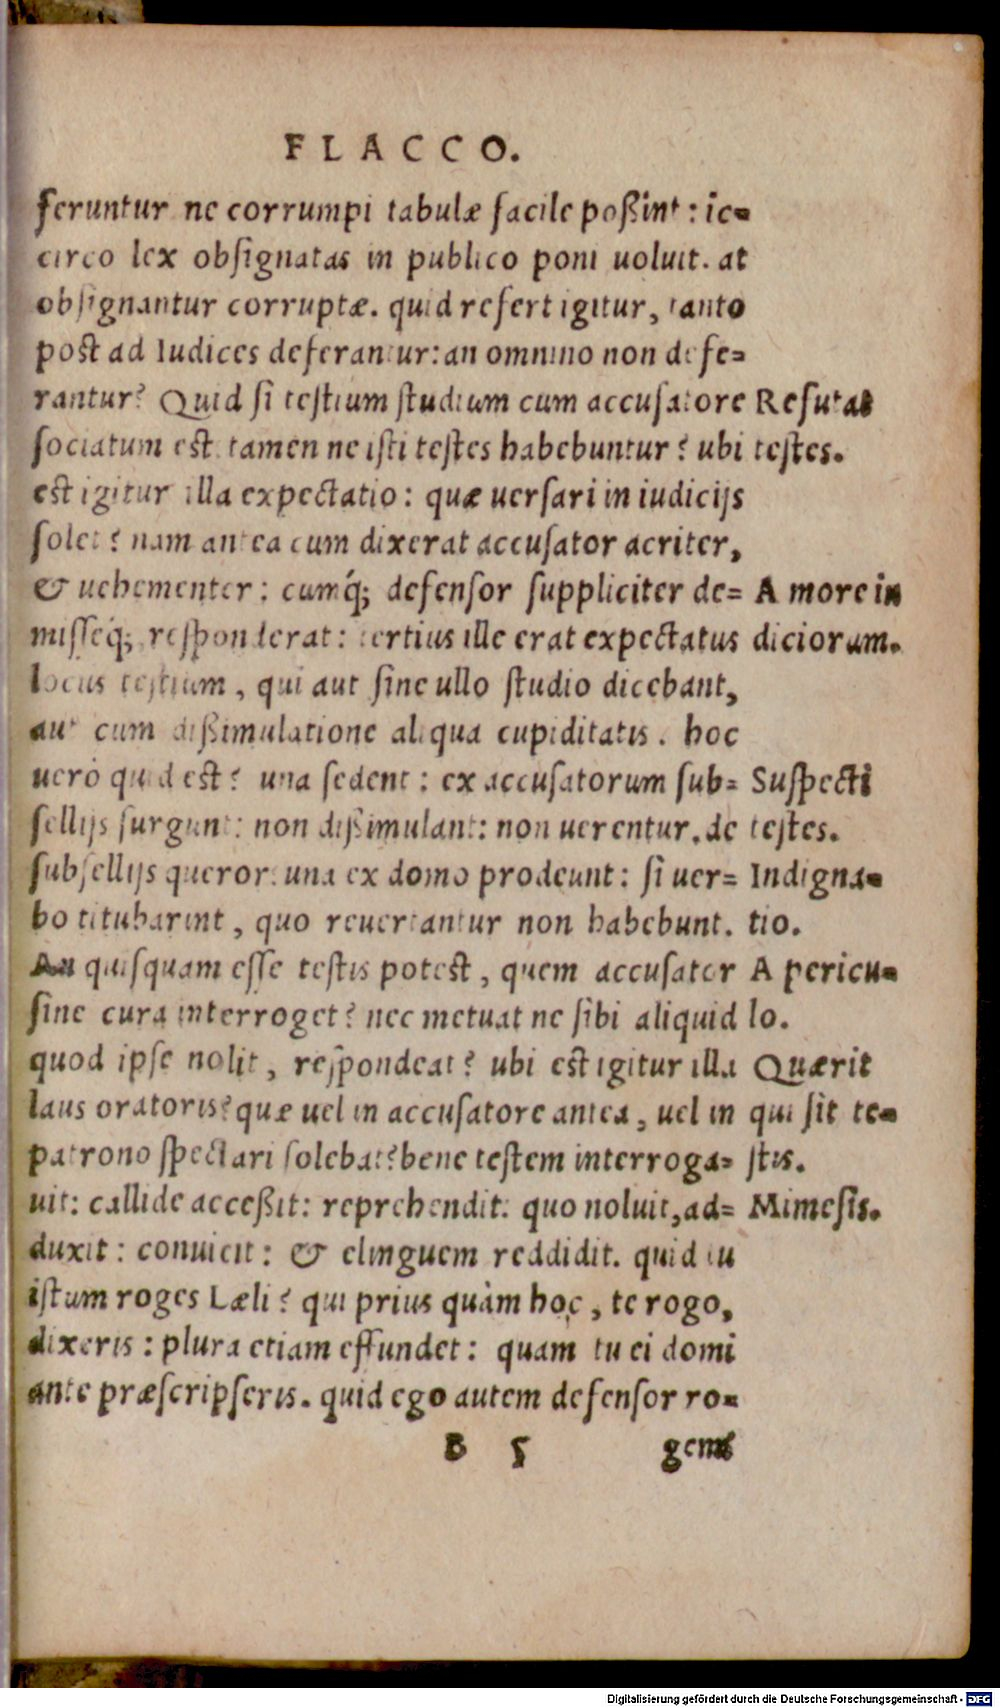 FLACCO.
feruntur ne corrumpi tabulæ facile poßint: ic=
circo lex obsignatas in publico poni uoluit. at
obsignantur corruptæ. quid refert igitur, tanto
post ad Iudices deferantur: an omnino non defe=
rantur? Quid si testium studium cum accusatore
Refutat
sociatum est. tamen ne isti testes habebuntur? ubi
testes.
est igitur illa expectatio: quæ uersari in iudicijs
solet? nam antea cum dixerat accusator acriter,
& uehementer: cumq́; defensor suppliciter de=
A more iu
misseq́; responderat: tertius ille erat expectatus
diciorum.
locus testium, qui aut sine ullo studio dicebant,
aut cum dißimulatione aliqua cupiditatis. hoc
uerò quid est? una sedent: ex accusatorum sub=
Suspecti
sellijs surgunt: non dißimulant: non uerentur. de
testes.
subsellijs queror: una ex domo prodeunt: si uer=
Indigna=
bo titubarint, quo reuertantur non habebunt.
tio.
An quisquam esse testis potest, quem accusator
A pericu=
sine cura interroget? nec metuat ne sibi aliquid
lo.
quod ipse nolit, respondeat? ubi est igitur illa
Quærit
laus oratoris? quæ uel in accusatore antea, uel in
qui sit te=
patrono spectari solebat? bene testem interroga=
stis.
uit: callide acceßit: reprehendit: quo noluit, ad=
Mimesis.
duxit: conuicit: & elinguem reddidit. quid tu
istum roges Læli? qui prius quàm hoc, te rogo,
dixeris: plura etiam effundet: quam tu ei domi
ante præscripseris. quid ego autem defensor ro=
B 5 gem
Digitalisierung gefördert durch die Deutsche Forschungsgemeinschaft - DFG